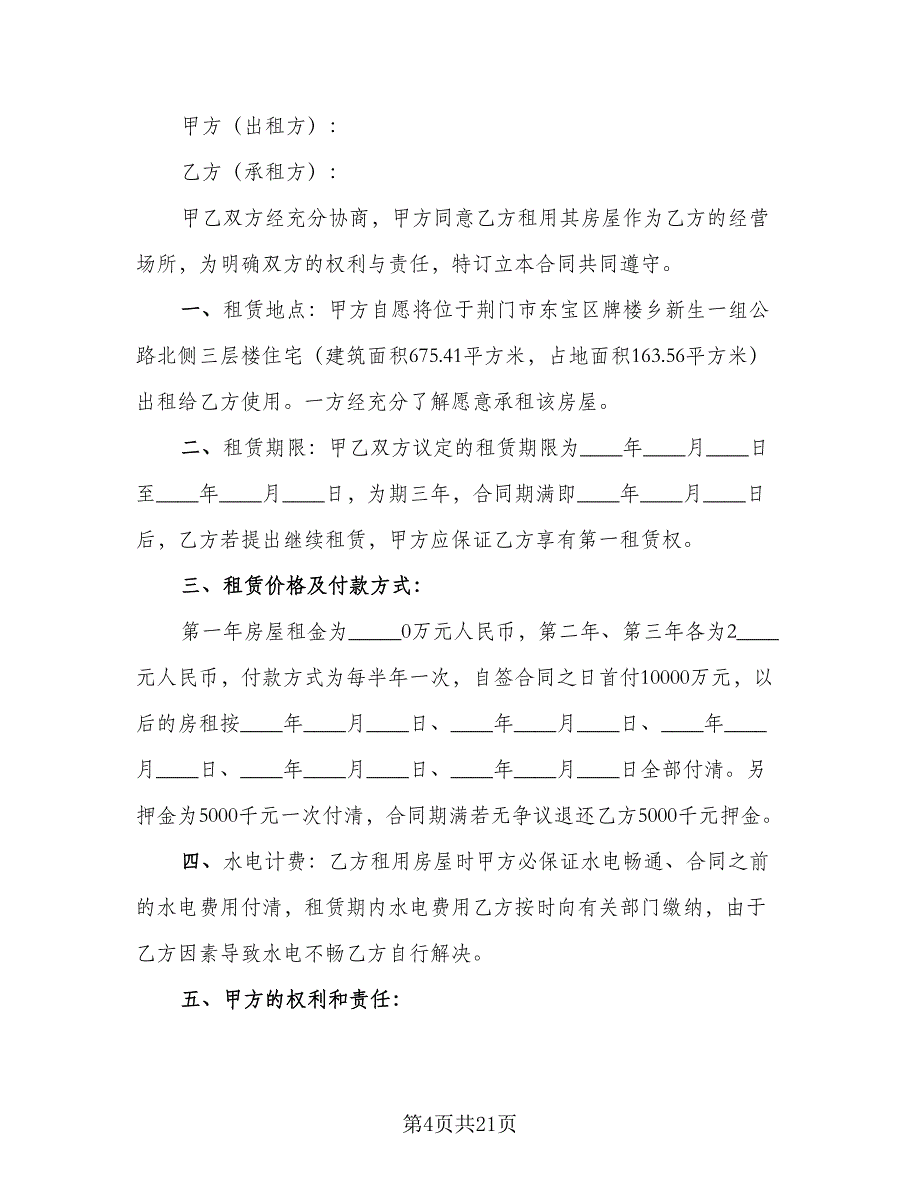 甲方（出租方）：
乙方（承租方）：
甲乙双方经充分协商，甲方同意乙方租用其房屋作为乙方的经营
场所，为明确双方的权利与责任，特订立本合同共同遵守。
一、租赁地点：甲方自愿将位于荆门市东宝区牌楼乡新生一组公
路北侧三层楼住宅（建筑面积675.41平方米，占地面积163.56平方米）
出租给乙方使用。一方经充分了解愿意承租该房屋。
二、租赁期限：甲乙双方议定的租赁期限为____年____月____日
至____年____月____日，为期三年，合同期满即____年____月____日
后，乙方若提出继续租赁，甲方应保证乙方享有第一租赁权。
三、租赁价格及付款方式：
第一年房屋租金为_____0万元人民币，第二年、第三年各为2____
元人民币，付款方式为每半年一次，自签合同之日首付10000万元，以
后的房租按____年____月____日、____年____月____日、____年____
月____日、____年____月____日、____年____月____日全部付清。另
押金为5000千元一次付清，合同期满若无争议退还乙方5000千元押金。
四、水电计费：乙方租用房屋时甲方必保证水电畅通、合同之前
的水电费用付清，租赁期内水电费用乙方按时向有关部门缴纳，由于
乙方因素导致水电不畅乙方自行解决。
五、甲方的权利和责任：
第4页共21页